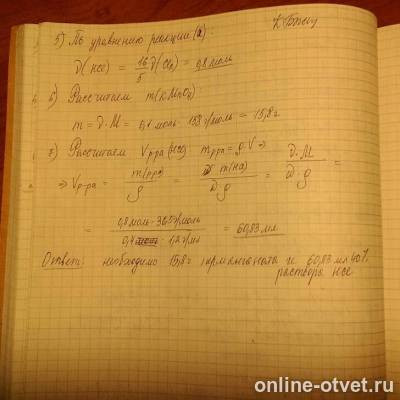 К Божему
5) По уравнению реакции (а):
ν(HCl) = 16/5 ν(Cl₂) = 0,8 моль
6) Рассчитаем m(KMnO₄)
m = ν · M = 0,1 моль · 158 г/моль = 15,8 г
7) Рассчитаем Vр-ра (HCl) mр-ра = ρ · V ⇒
⇒ Vр-ра = m(р-ра)/ρ = m(HCl)/(ω · ρ) = ν · M/(ω · ρ) =
= 0,8 моль · 36,5 г/моль / 0,4 · 1,2 г/мл = 60,83 мл
Ответ: необходимо 15,8 г перманганата и 60,83 мл 40%
раствора HCl
online-otvet.ru